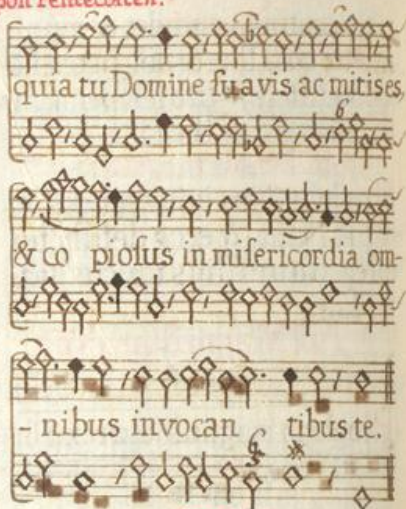 Pentecosten.
quia tu Domine suavis ac mitis es,
6
& co piosus in misericordia om-
- nibus invocan tibus te.
6